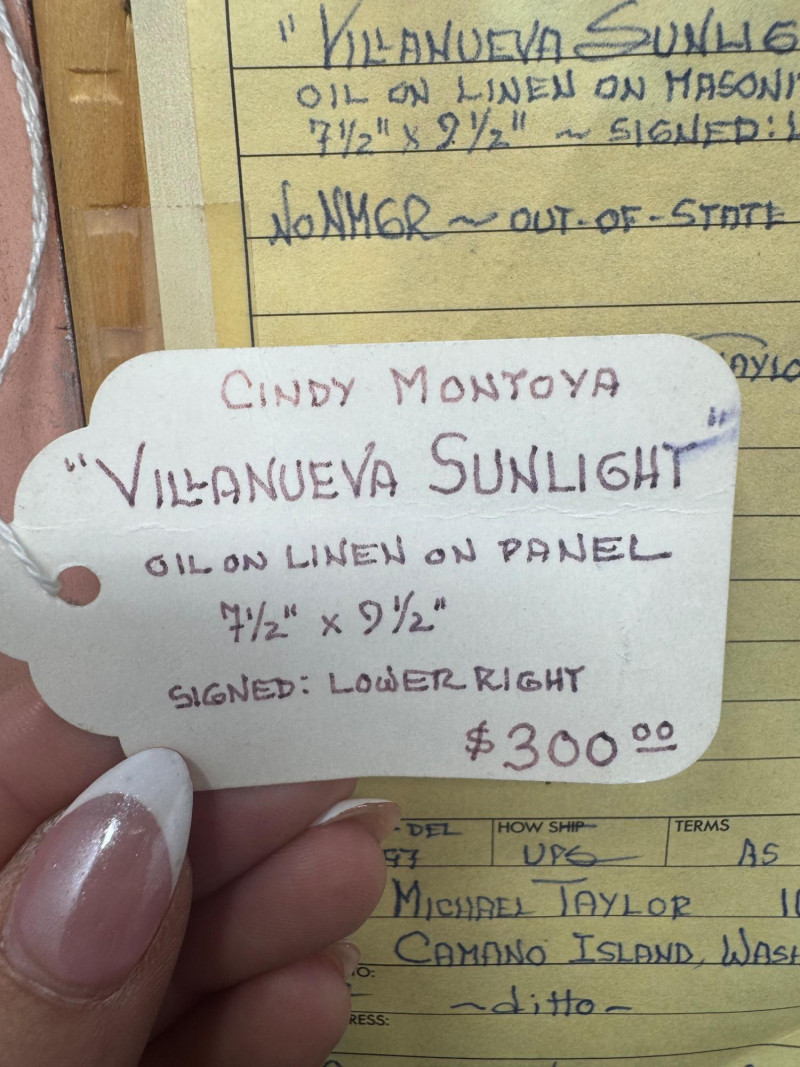 " VILLANUEVA SUNLIG
OIL ON LINEN ON MASONI
7½" x 9½" ~ SIGNED: L
NO NMGR ~ OUT-OF-STATE
AYLO
CINDY MONTOYA
"VILLANUEVA SUNLIGHT"
OIL ON LINEN ON PANEL
7½" x 9½"
SIGNED: LOWER RIGHT
$300.00
-DEL HOW SHIP TERMS
97 UPS AS
MICHAEL TAYLOR 10
CAMANO ISLAND, WASH
TO:
~ditto~
RESS: